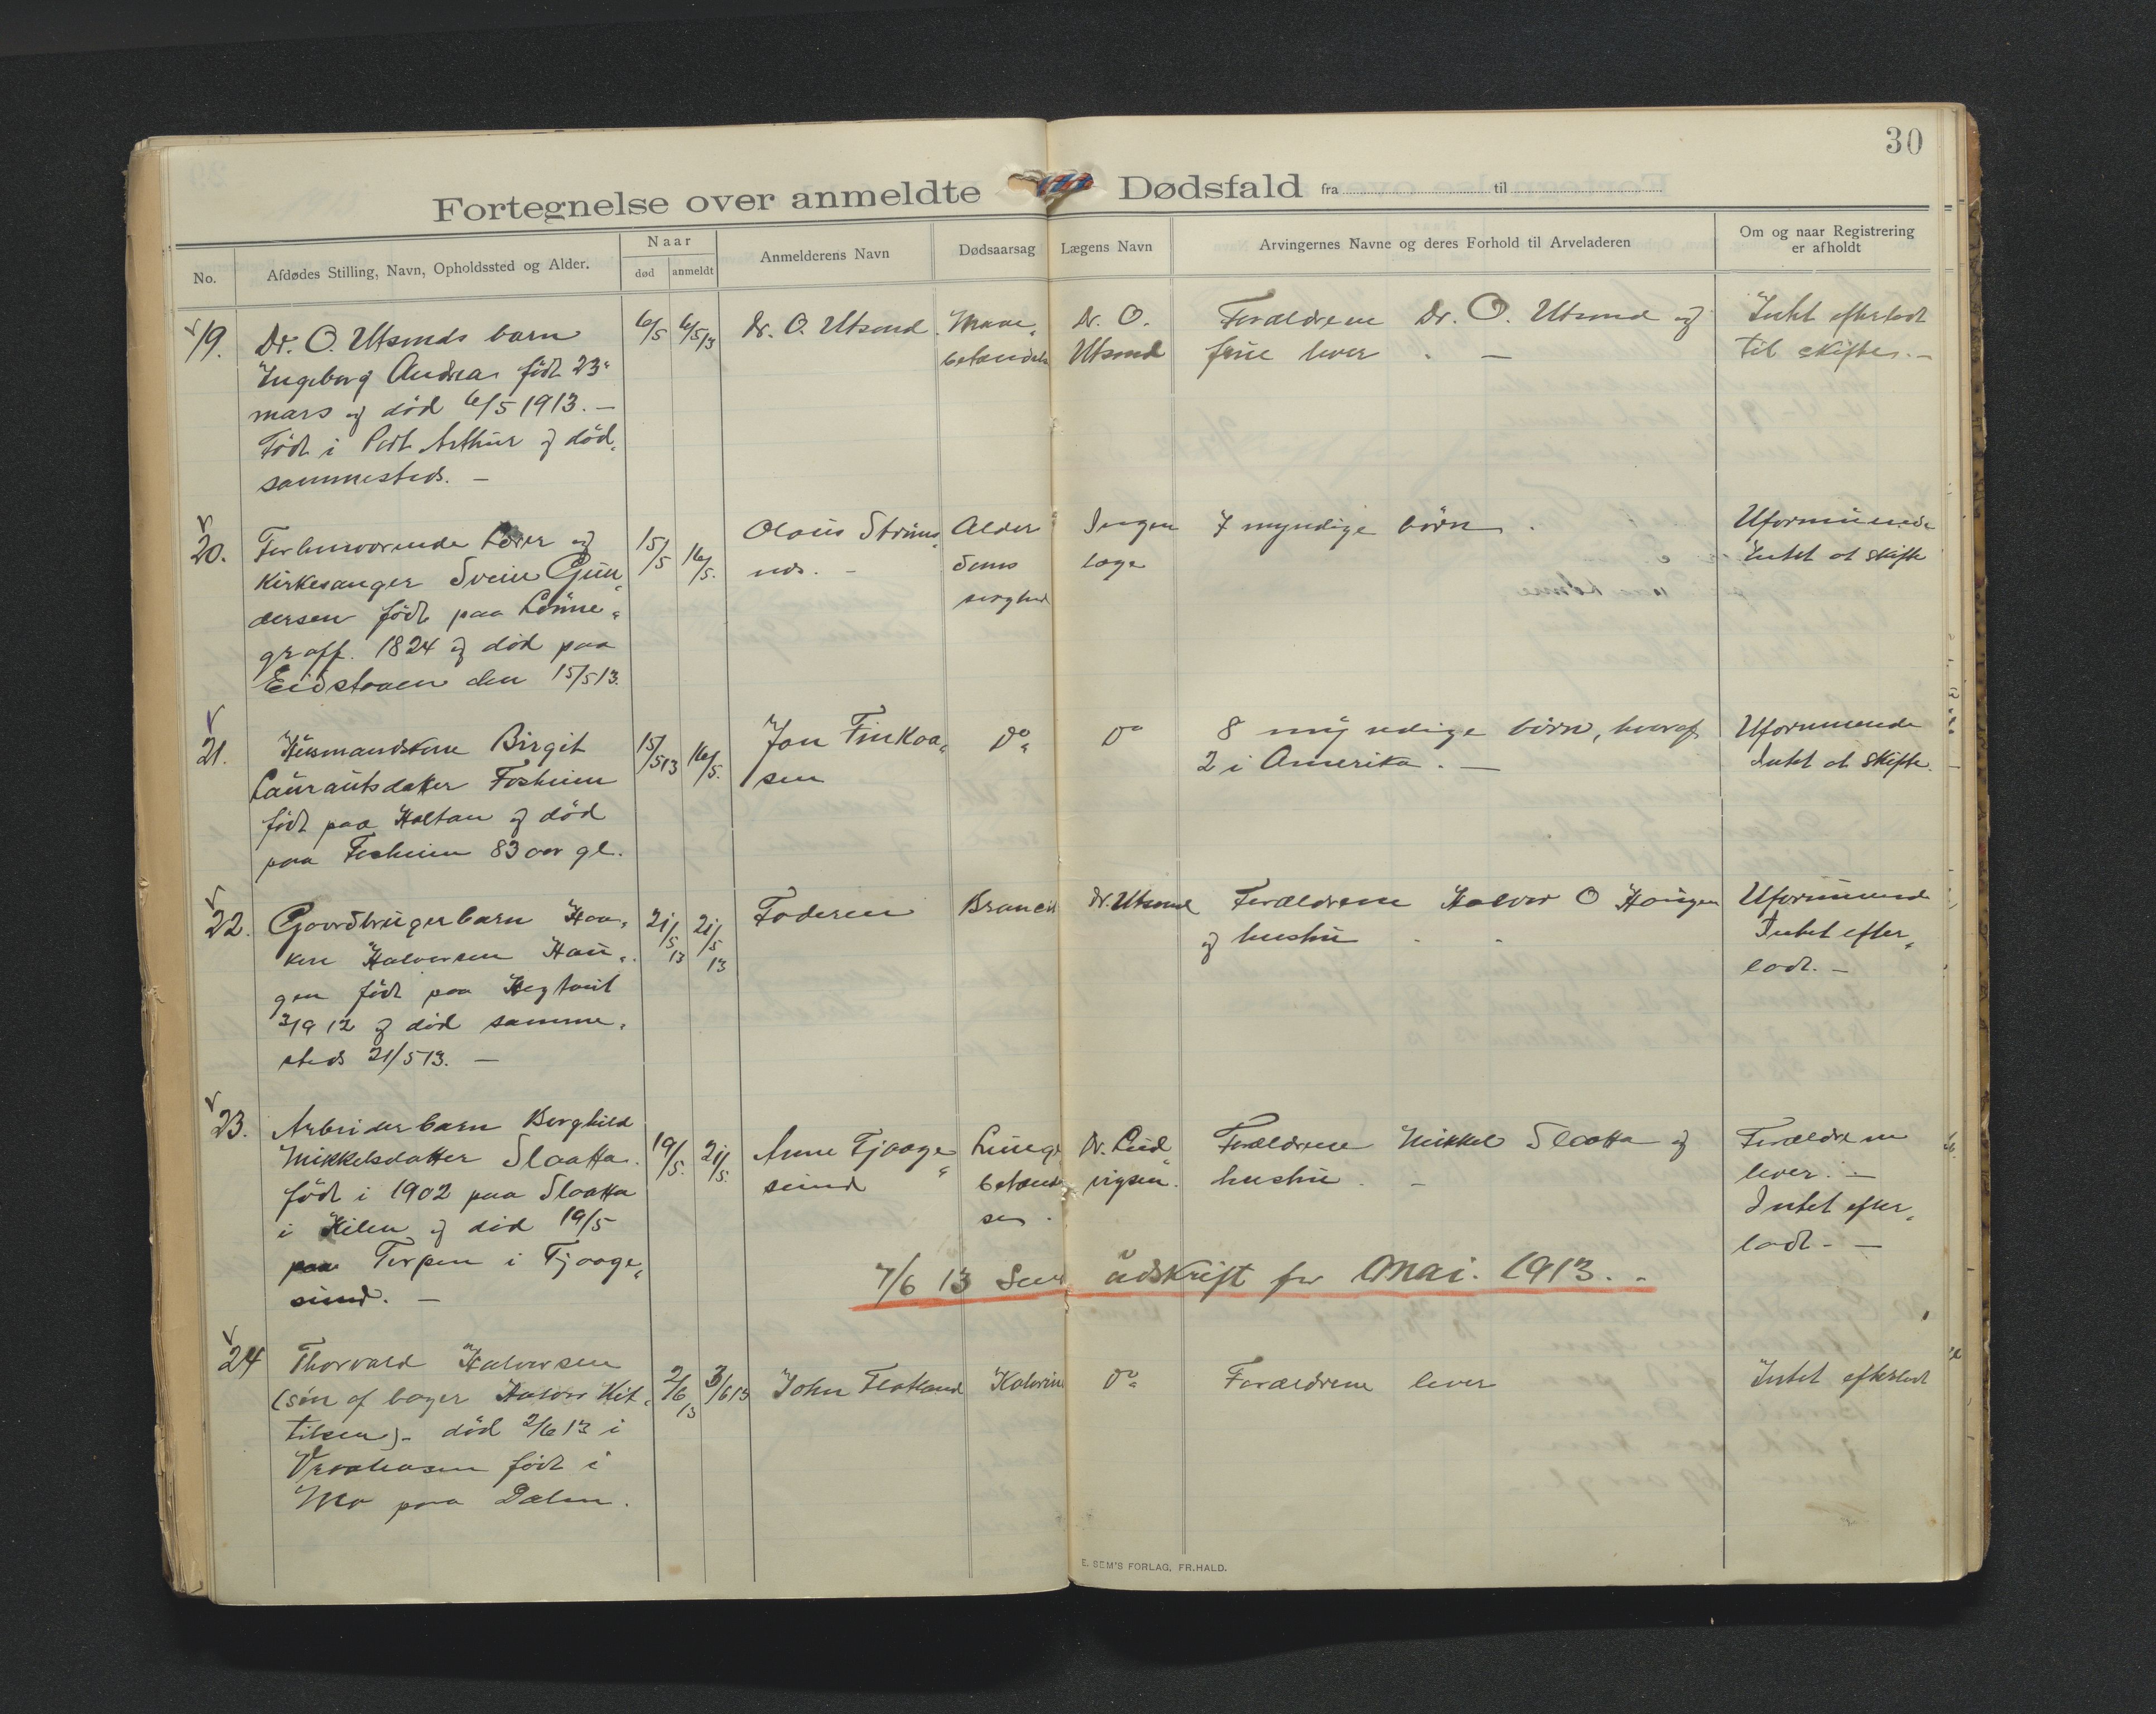 30
Fortegnelse over anmeldte Dødsfald fra til
No.
Afdødes Stilling, Navn, Opholdssted og Alder.
Naar
død anmeldt
Anmelderens Navn
Dødsaarsag
Lægens Navn
Arvingernes Navne og deres Forhold til Arveladeren
Om og naar Registrering
er afholdt
19.
Dr. O. Utsonds barn
Ingeborg Andrea født 23
mars og død 6/5 1913. —
Født i Port Arthur og død
sammesteds. —
6/5
6/5 13
Dr. O. Utsond
Mave-
betændelse
Dr. O.
Utsond
Forældrene Dr. O. Utsond og
frue lever. —
Intet efterladt
til skifte. —
20.
Forhenværende Lærer og
Kirkesanger Svein Gun-
dersen født paa Lönne-
graff. 1824 og død paa
Eidstaaen den 15/5 13.
15/5
16/5.
Olaus Strøms-
nes. —
Alder
doms
svaghed
Ingen
læge
7 myndige børn.
Uformuende
Intet at skifte
21.
Husmandskone Birgit
Laurautsdatter Fosheim
født paa Haltan og død
paa Fosheim 83 aar gl.
15/5 13
16/5.
Jon Finkoa-
sen
Do
Do
8 myndige børn, hvoraf
2 i Amerika. —
Uformuende
Intet at skifte.
22.
Gaardbrugerbarn Haa-
kon Halvorsen Hau-
gen født paa Hegtveit
3/9 12 og død samme-
steds 21/5 13. —
21/5 13
21/5 13
Faderen
Broncit
Dr. Utsond
Forældrene Halvor O Haugen
og hustru
Uformuende
Intet efter-
ladt. —
23.
Arbeiderbarn Borghild
Mikkelsdatter Slaatta.
født i 1902 paa Slaatta
i Kilen og død 19/5
paa Torpen i Fjaage-
sund. —
19/5.
21/5.
Anne Fjaage-
sund
Lunge-
betænd-
se.
Dr. Lud
vigsen.
Forældrene Mikkel Slaatta og
hustru. —
Forældrene
lever. —
Intet efter-
ladt. —
7/6 13 Sendt udskrift for Mai. 1913.
24
Thorvald Halvorsen
(søn af bager Halvor Kit-
tilsen). død 2/6 13 i
Vraaliosen født i
Mo paa Dalen.
2/6 13
3/6 13
John Flatland
Do
Forældrene lever
Intet efterladt
E. SEM'S FORLAG, FR.HALD.